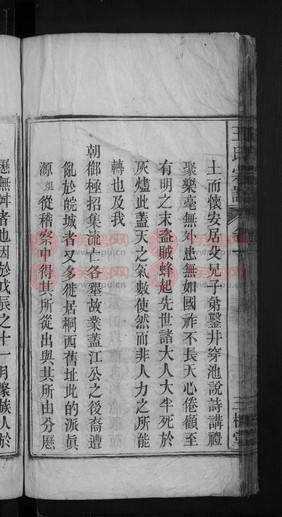 土而懷安居父兄子弟鑿井穿池說詩講禮
聚樂毫無外患無如國祚不長天心倦顧至
有明之末盜賊蜂起先世諸大人大半死於
灰燼此蓋天之氣數使然而非人力之所能
轉也及我
朝御極招集流亡各墾故業蓋江公之後裔遭
亂於皖城者又多徙居桐西舊址此的派眞
源從稱察中得其所從出與其所由分厯
厯無舛者也因於戊辰之十一月聚族人於